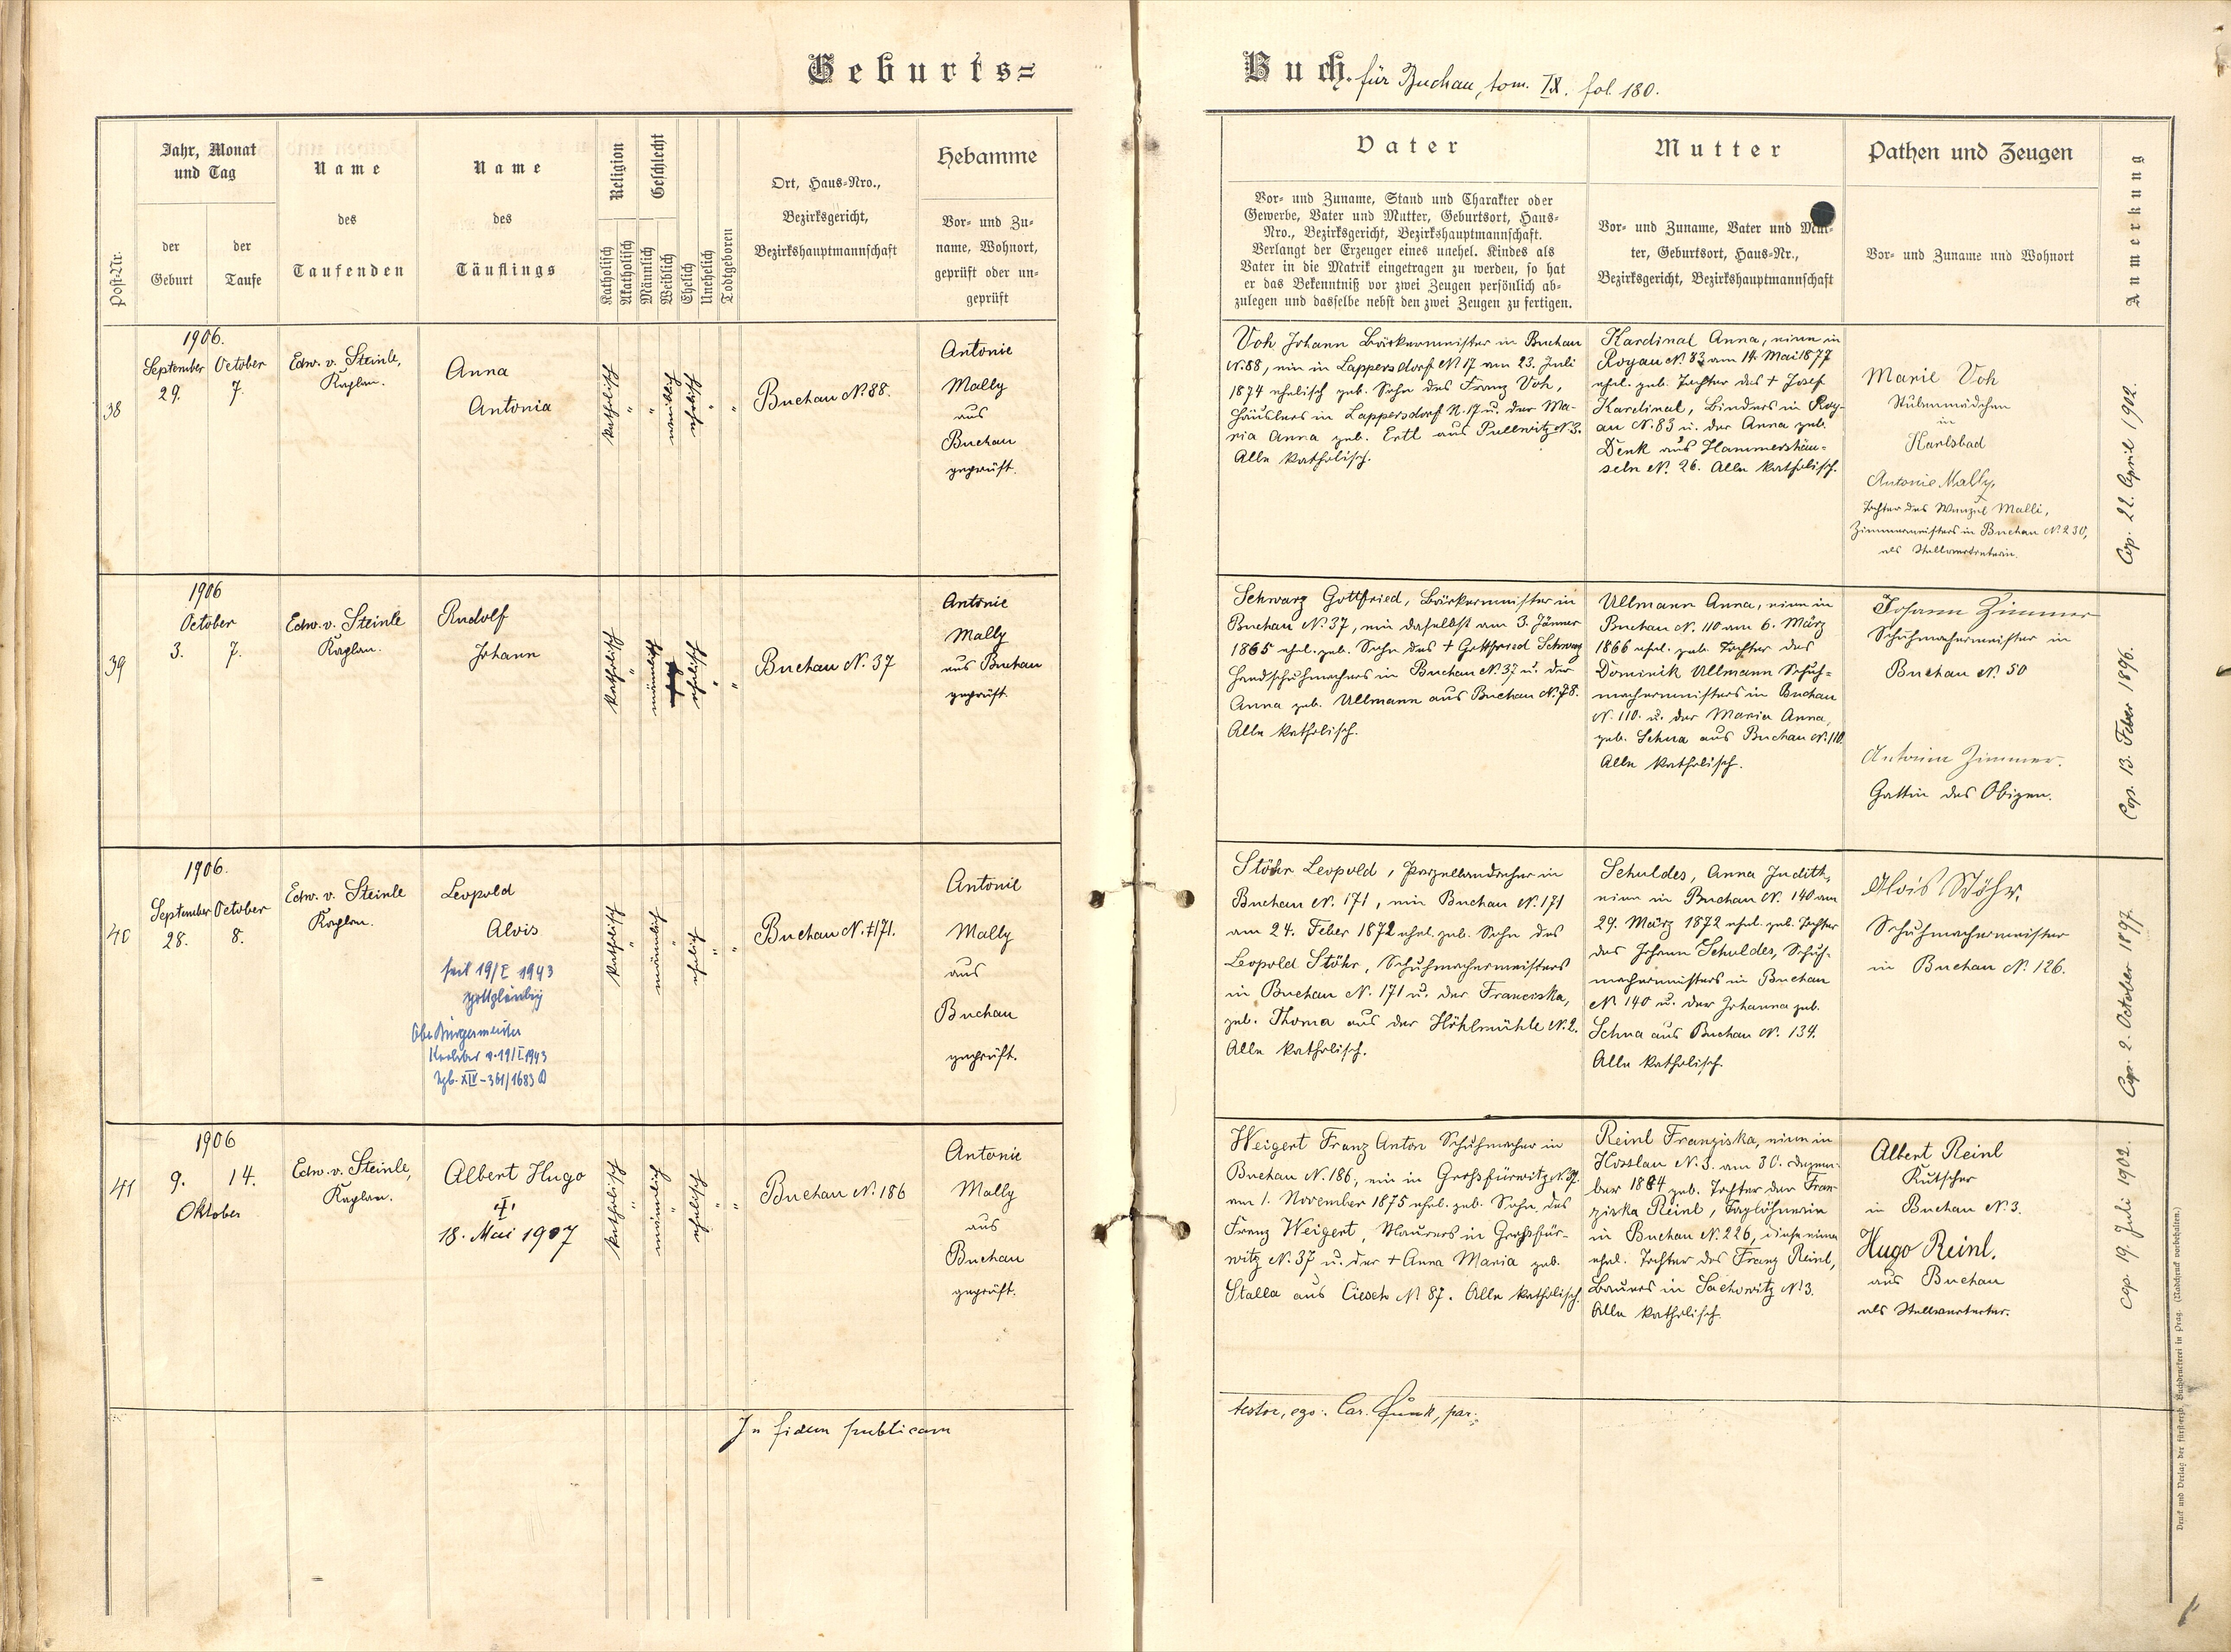 Geburts=
Buch. für Buchau, tom. IX. fol. 180.
Post-Nr.
Jahr, Monat
und Tag
der
Geburt
der
Taufe
Name
des
Taufenden
Name
des
Täuflings
Religion
Katholisch
Akatholisch
Geschlecht
Männlich
Weiblich
Ehelich
Unehelich
Todtgeboren
Ort, Haus=Nro.,
Bezirksgericht,
Bezirkshauptmannschaft
Hebamme
Vor= und Zu=
name, Wohnort,
geprüft oder un=
geprüft
Vater
Vor= und Zuname, Stand und Charakter oder
Gewerbe, Vater und Mutter, Geburtsort, Haus=
Nro., Bezirksgericht, Bezirkshauptmannschaft.
Verlangt der Erzeuger eines unehel. Kindes als
Vater in die Matrik eingetragen zu werden, so hat
er das Bekenntniß vor zwei Zeugen persönlich ab=
zulegen und dasselbe nebst den zwei Zeugen zu fertigen.
Mutter
Vor= und Zuname, Vater und Mut=
ter, Geburtsort, Haus=Nr.,
Bezirksgericht, Bezirkshauptmannschaft
Pathen und Zeugen
Vor= und Zuname und Wohnort
Anmerkung
38
1906.
September
29.
October
7.
Edw. v. Steinle,
Kaplan.
Anna
Antonia
katholisch
"
"
weiblich
ehelich
"
"
Buchau N. 88.
Antonie
Mally
aus
Buchau
geprüft.
Voh Johann Bäckermeister in Buchau
N. 88, ein in Lappersdorf N. 17 am 23. Juli
1874 ehelich geb. Sohn des Franz Voh,
Häuslers in Lappersdorf N. 17 u. der Ma-
ria Anna geb. Ertl aus Pullwitz N. 3.
Alle katholisch.
Kardinal Anna, eine in
Royau N. 83 am 14. Mai 1877
ehel. geb. Tochter des + Josef
Kardinal, Binders in Roy-
au N. 83 u. der Anna geb.
Denk aus Hammershäu-
seln N. 26. Alle katholisch.
Marie Voh
Stubenmädchen
in
Karlsbad
Antonie Mally,
Tochter des Wenzel Malli,
Zimmermeisters in Buchau N. 230,
als Stellvertreterin.
Cop. 22. April 1902.
39
1906
October
3.
7.
Edw. v. Steinle
Kaplan.
Rudolf
Johann
katholisch
"
männlich
ehelich
"
"
Buchau N. 37
Antonie
Mally
aus Buchau
geprüft.
Schwarz Gottfried, Bäckermeister in
Buchau N. 37, ein daselbst am 3. Jänner
1865 ehel. geb. Sohn des + Gottfried Schwarz
Handschuhmachers in Buchau N. 37 u. der
Anna geb. Ullmann aus Buchau N. 78.
Alle katholisch.
Ullmann Anna, eine in
Buchau N. 110 am 6. März
1866 ehel. geb. Tochter des
Dominik Ullmann Schuh=
machermeisters in Buchau
N. 110. u. der Maria Anna,
geb. Schua aus Buchau N. 110.
Alle katholisch.
Johann Zimmer
Schuhmachermeister in
Buchau N. 50
Antonia Zimmer.
Gattin des Obigen.
Cop. 13. Feber 1896.
40
1906.
September
28.
October
8.
Edw. v. Steinle
Kaplan.
Leopold
Alois
seit 19/I 1943
gottgläubig
Oberbürgermeister
Karlsbad v. 19/I. 1943
Zgb. XIV-361/1683
katholisch
"
männlich
"
ehelich
"
"
Buchau N. 171.
Antonie
Mally
aus
Buchau
geprüft.
Stöhr Leopold, Porzellandreher in
Buchau N. 171, ein Buchau N. 171
am 24. Feber 1872 ehel. geb. Sohn des
Leopold Stöhr, Schuhmachermeisters
in Buchau N. 171 u. der Franciska,
geb. Thoma aus der Höhlmühle N. 2.
Alle katholisch.
Schuldes, Anna Judith,
eine in Buchau N. 140 am
29. März 1872 ehel. geb. Tochter
des Johann Schuldes, Schuh-
machermeisters in Buchau
N. 140 u. der Johanna geb.
Schua aus Buchau N. 134.
Alle katholisch.
Alois Stöhr,
Schuhmachermeister
in Buchau N. 126.
Cop. 2. October 1897.
41
1906
9.
14.
Oktober
Edw. v. Steinle,
Kaplan.
Albert Hugo
+
18. Mai 1907
katholisch
"
männlich
"
ehelich
"
"
Buchau N. 186
Antonie
Mally
aus
Buchau
geprüft.
Weigert Franz Anton Schuhmacher in
Buchau N. 186, ein in Großfürwitz N. 37
am 1. November 1875 ehel. geb. Sohn des
Franz Weigert, Maurers in Großfür-
witz N. 37 u. der + Anna Maria geb.
Stalla aus Ciesch N. 87. Alle katholisch.
Reinl Franziska, eine in
Kosslau N. 3. am 30. Dezem-
ber 1884 geb. Tochter der Fran-
ziska Reinl, Taglöhnerin
in Buchau N. 226, diese eine
ehel. Tochter des Franz Reinl,
Bauers in Sachowitz N. 3.
Alle katholisch.
Albert Reinl
Kutscher
in Buchau N. 3.
Hugo Reinl.
aus Buchau
als Stellvertreter.
Cop. 19. Juli 1902.
In fidem publicam
testor, ego: Car. Funk, par.
Druck und Verlag der fürsterzb. Buchdruckerei in Prag. (Nachdruck vorbehalten.)